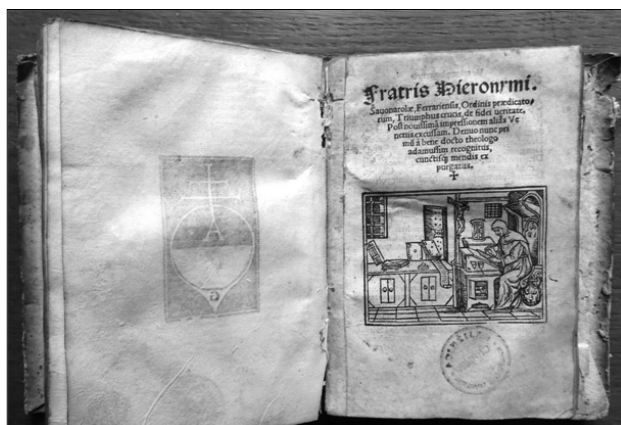 Fratris Hieronymi.
Sauonarolæ, Ferrariensis, Ordinis prædicato/
rum, Triumphus crucis, de fidei ueritate,
Post nouissimã impressionem aliàs Ve
netiis excussam. Denuo nunc pri
mũ à bene docto theologo
adamussim recognitus,
cunctisq; mendis ex
purgatus.